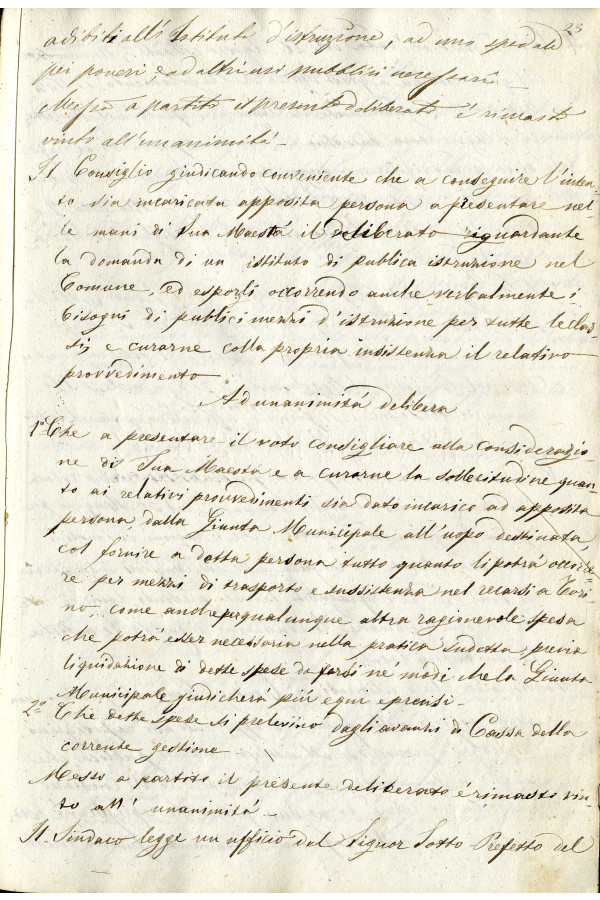 23
adibiti all'Istituto d'istruzione, ad uno spedale
pei poveri e ad altri usi pubblici necessari.
Messo a partito il presente deliberato è rimasto
vinto all'unanimitá.
Il Consiglio giudicando conveniente che a conseguire l'inten-
to sia incaricata apposita persona a presentare nel-
le mani di Sua Maestá il deliberato riguardante
la domanda di un istituto di publica istruzione nel
Comune, ed esporli occorrendo anche verbalmente i
bisogni di publici mezzi d'istruzione per tutte le clas-
si, e curarne colla propria insistenza il relativo
provvedimento
Ad unanimitá delibera
1º Che a presentare il voto consigliare alla considerazio-
ne di Sua Maestá e a curarne la sollecitudine quan-
to ai relativi provvedimenti sia dato incarico ad apposita
persona, dalla Giunta Municipale all'uopo destinata,
col fornire a detta persona tutto quanto li potrá occorre=
re per mezzi di trasporto e sussistenza nel recarsi a Tori-
no, come anche per qualunque altra ragionevole spesa
che potrá esser necessaria nella pratica sudetta, previa
liquidazione di dette spese da farsi ne' modi che la Giunta
Municipale giudicherá piú equi e precisi.
2º Che dette spese si prelevino dagli avanzi di Cassa della
corrente gestione
Messo a partito il presente deliberato é rimasto vin-
to all'unanimitá.
Il Sindaco legge un ufficio del Signor Sotto-Prefetto del